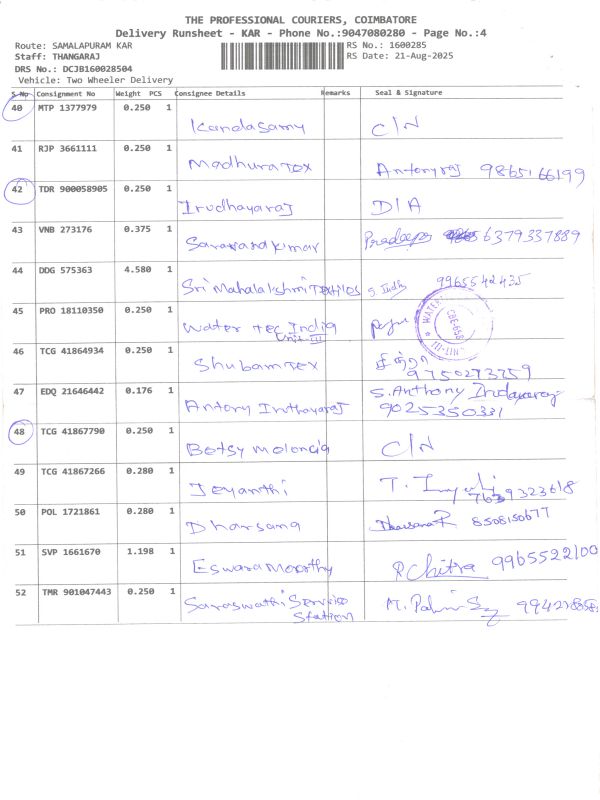 THE PROFESSIONAL COURIERS, COIMBATORE
Delivery Runsheet - KAR - Phone No.:9047080280 - Page No.:4
Route: SAMALAPURAM KAR RS No.: 1600285
Staff: THANGARAJ RS Date: 21-Aug-2025
DRS No.: DCJB160028504
Vehicle: Two Wheeler Delivery
S.No Consignment No Weight PCS Consignee Details Remarks Seal & Signature
40 MTP 1377979 0.250 1
Kandasamy C/N
41 RJP 3661111 0.250 1
Madhura Tex Antonyraj 9865166199
42 TDR 900058905 0.250 1
Irudhayaraj D/A
43 VNB 273176 0.375 1
Saravanakumar Pradeep 6379337889
44 DDG 575363 4.580 1
Sri Mahalakshmi Textiles 9965542435
45 PRO 18110350 0.250 1
Water Tec India
Unit-III
46 TCG 41864934 0.250 1
Shubam Tex சித்ரா
9750273759
47 EDQ 21646442 0.176 1
Antony Inthayaraj S. Anthony Indayaraj
9025350331
48 TCG 41867790 0.250 1
Betsy Molencia C/N
49 TCG 41867266 0.280 1
Jeyanthi T.
7639323618
50 POL 1721861 0.280 1
Dharsana Dharsana P 8508150677
51 SVP 1661670 1.198 1
Eswara Moorthy R Chitra 9965522100
52 TMR 901047443 0.250 1
Saraswathi Service
Station